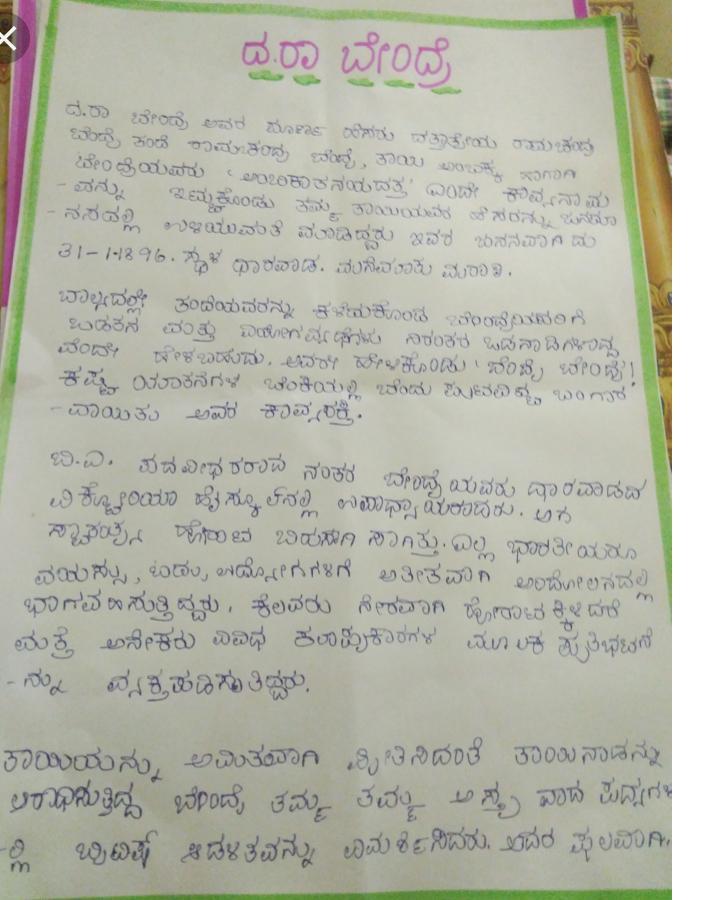 ದ.ರಾ ಬೇಂದ್ರೆ
ದ.ರಾ ಬೇಂದ್ರೆ ಅವರ ಪೂರ್ಣ ಹೆಸರು ದತ್ತಾತ್ರೇಯ ರಾಮಚಂದ್ರ
ಬೇಂದ್ರೆ ತಂದೆ ರಾಮಚಂದ್ರ ಬೇಂದ್ರೆ, ತಾಯಿ ಅಂಬಕ್ಕ ಹಾಗಾಗಿ
ಬೇಂದ್ರೆಯವರು 'ಅಂಬಿಕಾತನಯದತ್ತ' ಎಂದೇ ಕಾವ್ಯನಾಮ
- ವನ್ನು ಇಟ್ಟುಕೊಂಡು ತಮ್ಮ ತಾಯಿಯವರ ಹೆಸರನ್ನು ಜನಮಾ
- ನಸದಲ್ಲಿ ಉಳಿಯುವಂತೆ ಮಾಡಿದ್ದರು ಇವರ ಜನನವಾಗಿದು
31-1-1896. ಸ್ಥಳ ಧಾರವಾಡ. ಮನೆಮಾತು ಮರಾಠಿ.
ಬಾಲ್ಯದಲ್ಲೇ ತಂದೆಯವರನ್ನು ಕಳೆದುಕೊಂಡ ಬೇಂದ್ರೆಯವರಿಗೆ
ಬಡತನ ಮತ್ತು ವಿಯೋಗವ್ಯಥೆಗಳು ನಿರಂತರ ಒಡನಾಡಿಗಳಾಗಿದ್ದ
ವೆಂದೇ ಹೇಳಬಹುದು. ಅವರೇ ಹೇಳಿಕೊಂಡು 'ಬೆಂದ್ರೆ ಬೇಂದ್ರೆ'!
ಕಷ್ಟ ಯಾತನೆಗಳ ಬೆಂಕಿಯಲ್ಲಿ ಬೆಂದು ಪುಟವಿಟ್ಟ ಬಂಗಾರ
- ವಾಯಿತು ಅವರ ಕಾವ್ಯಶಕ್ತಿ.
ಬಿ.ಎ. ಪದವೀಧರರಾದ ನಂತರ ಬೇಂದ್ರೆಯವರು ಧಾರವಾಡದ
ವಿಕ್ಟೋರಿಯಾ ಹೈಸ್ಕೂಲ್‌ನಲ್ಲಿ ಉಪಾಧ್ಯಾಯರಾದರು. ಆಗ
ಸ್ವಾತಂತ್ರ್ಯ ಹೋರಾಟ ಬಿರುಸಾಗಿ ಸಾಗಿತ್ತು. ಎಲ್ಲ ಭಾರತೀಯರೂ
ವಯಸ್ಸು, ಉದ್ಯೋಗಗಳಿಗೆ ಅತೀತವಾಗಿ ಆಂದೋಲನದಲ್ಲಿ
ಭಾಗವಹಿಸುತ್ತಿದ್ದರು. ಕೆಲವರು ನೇರವಾಗಿ ಹೋರಾಟಕ್ಕಿಳಿದರೆ
ಮತ್ತೆ ಅನೇಕರು ವಿವಿಧ ಕಲಾಪ್ರಕಾರಗಳ ಮೂಲಕ ಪ್ರತಿಭಟನೆ
- ನ್ನು ವ್ಯಕ್ತಪಡಿಸುತಿದ್ದರು.
ತಾಯಿಯನ್ನು ಅಮಿತವಾಗಿ ಪ್ರೀತಿಸಿದಂತೆ ತಾಯಿನಾಡನ್ನು
ಆರಾಧಿಸುತ್ತಿದ್ದ ಬೇಂದ್ರೆ ತಮ್ಮ ತಮ್ಮ ಅಸ್ತ್ರ ವಾದ ಪದ್ಯಗಳ
-ಲ್ಲಿ ಬ್ರಿಟಿಷ್ ಆಡಳಿತವನ್ನು ವಿಮರ್ಶಿಸಿದರು. ಅದರ ಫಲವಾಗಿ.